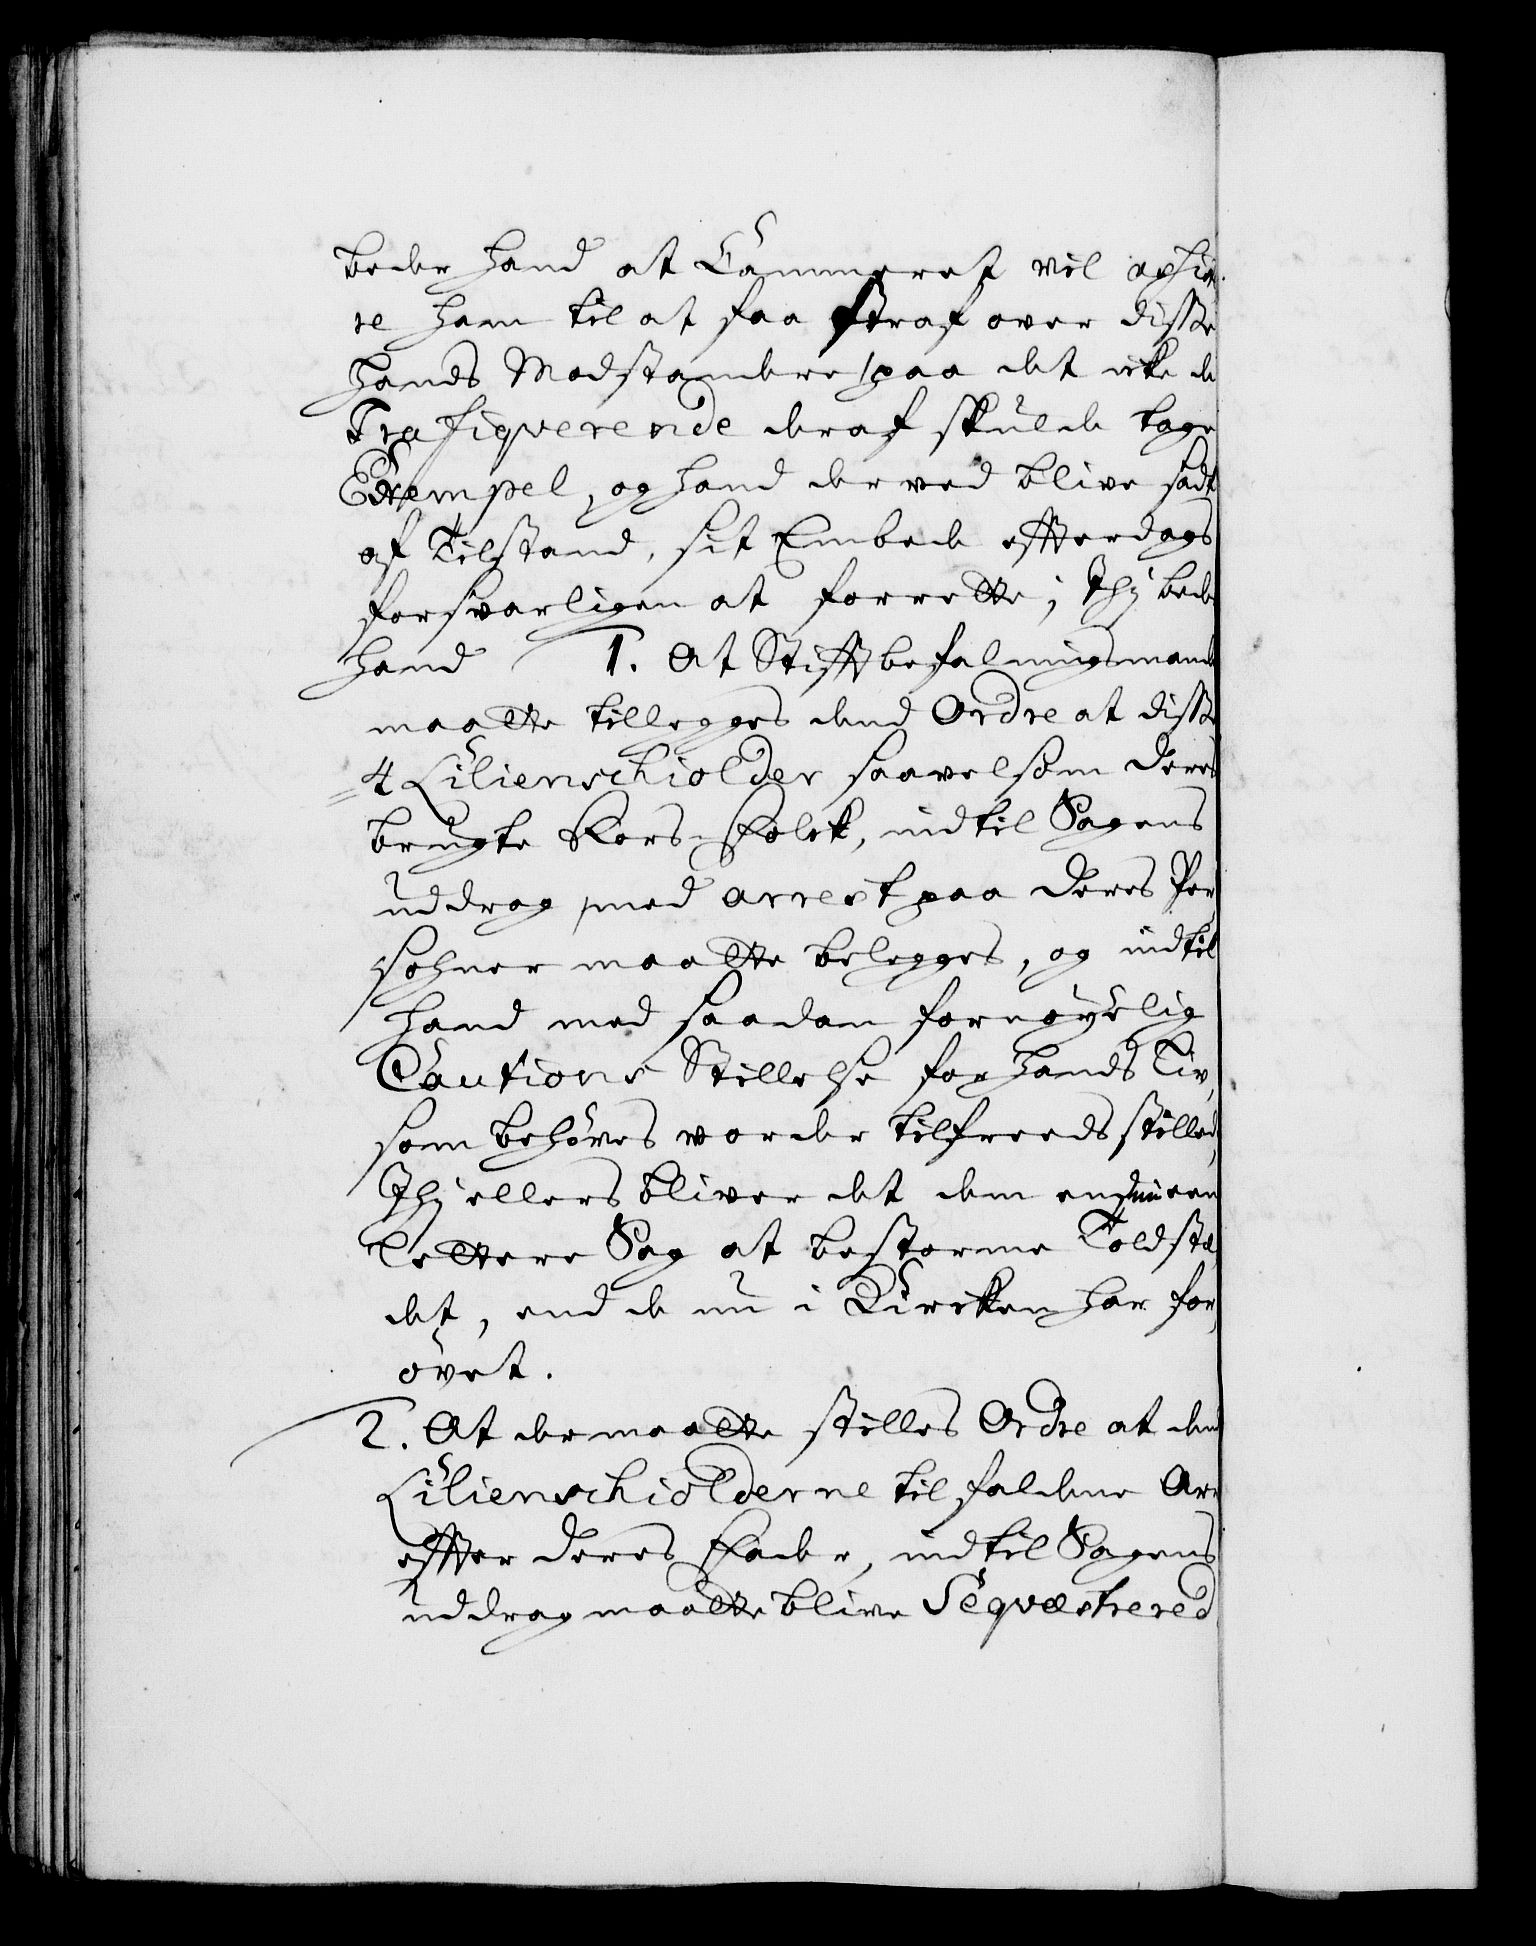 beder hand at Cammeret vil ophiel¬
pe ham til at faa straf over disse
hands Modstandere /paa det icke de
Trafiqverende deraf skulde tage
Exempel, og hand derved blive sadt
af Tilstand, sit Embede effterdags
forsvarligen at forrette; Thj beder
hand 1. At Stifftbefalningsmand
maatte tillegges dend Ordre at disse
4 Lilienschiolder saavelsom deres
brugte Kors-Folck, indtil Sagens
uddrag med arrest paa deres Per
sohner maatte belegges, og indtil
hand med saadan fornøyelig
Cautions Stillelse for hands Liv,
som behøves vorder tilfreeds stilled,
Thj ellers bliver det dem endnu een
lettere Sag at bestorme Toldstæ
det, end de nu i Kircken har for,
øvet.
2. At der maatte stilles Ordre at den
Lilienschiolderne til faldene Arv
effter deres Fader, indtil Sagens
uddrag maatte blive Seqvestrered